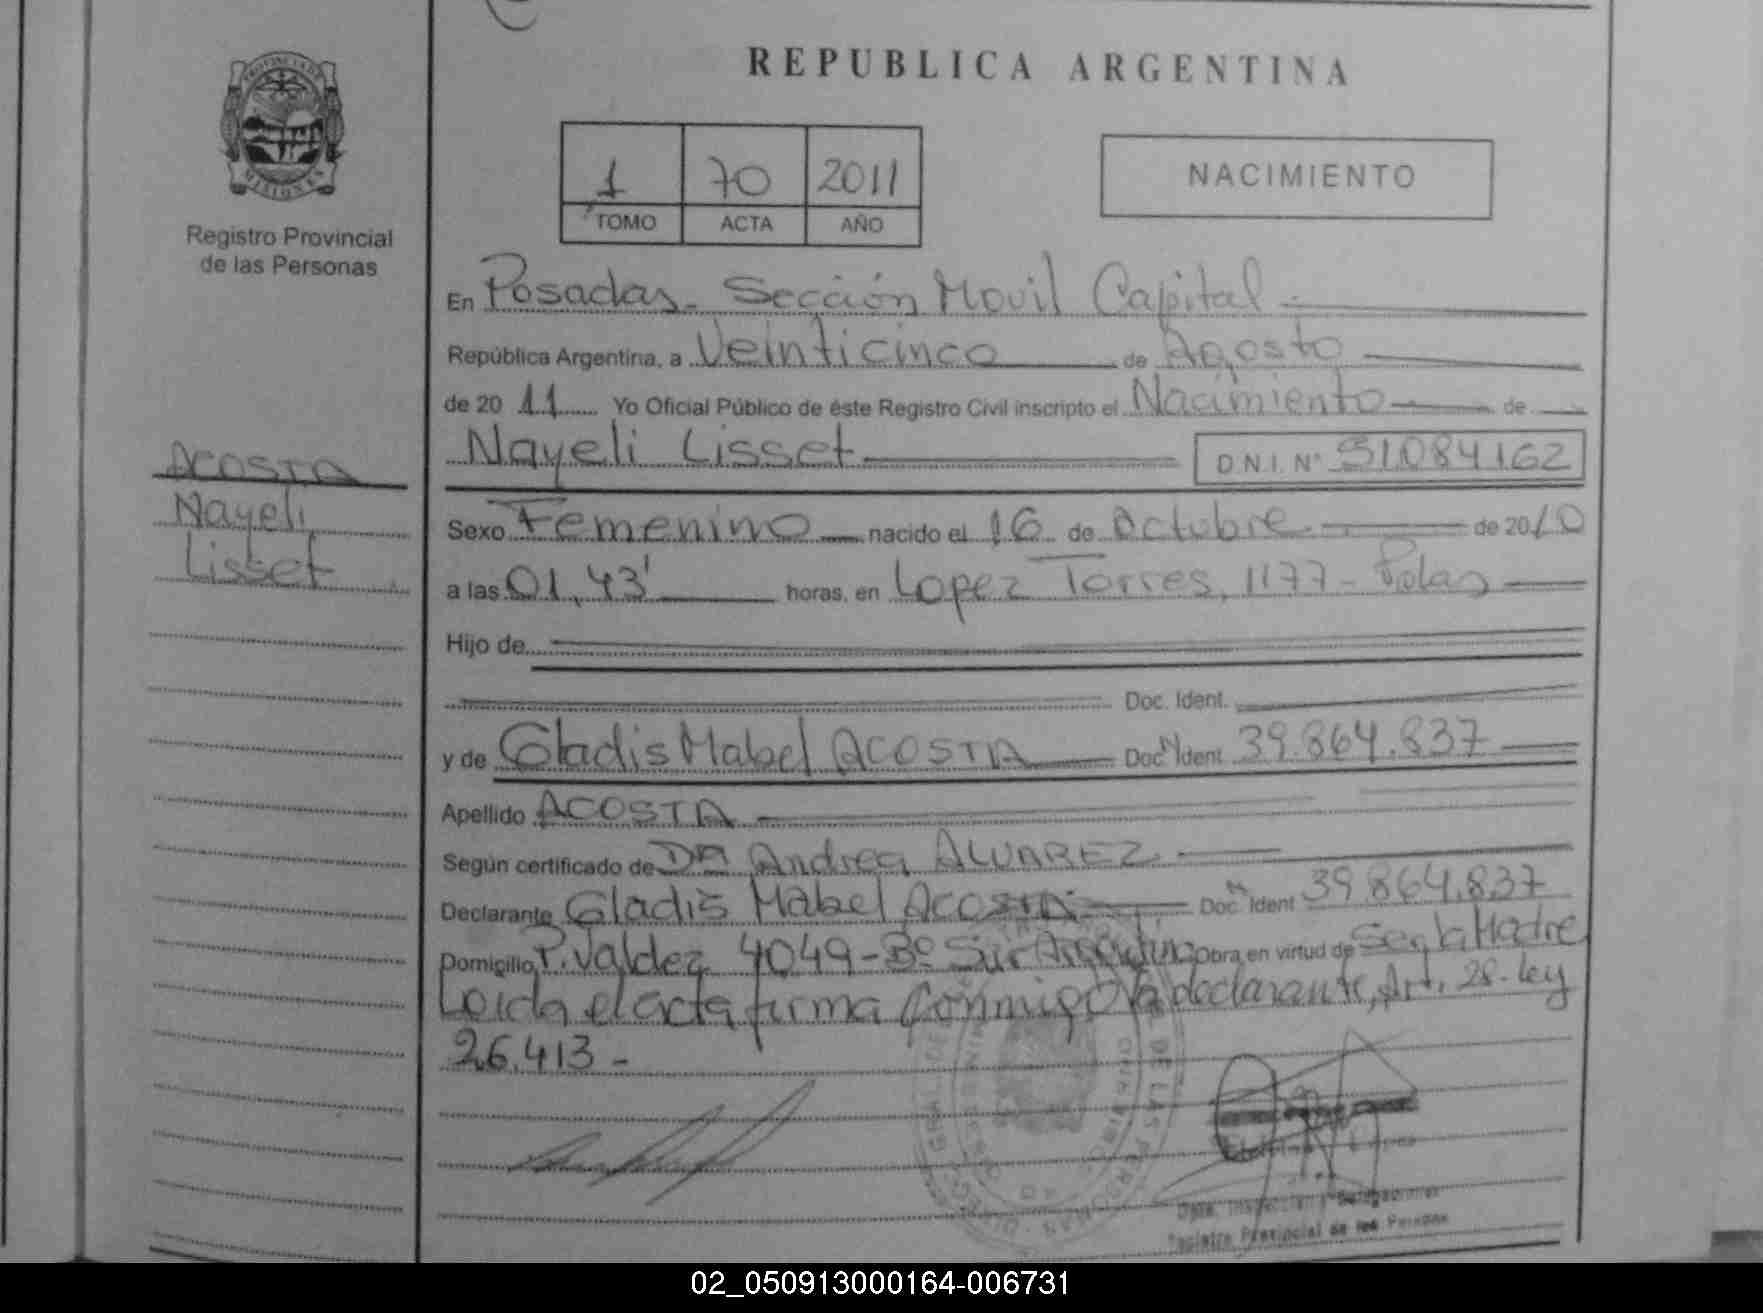 REPUBLICA ARGENTINA
PROVINCIA DE
MISIONES
Registro Provincial
de las Personas
1 70 2011
TOMO ACTA AÑO
NACIMIENTO
En Posadas - Sección Movil Capital -
República Argentina, a Veinticinco de Agosto
de 20 11 Yo Oficial Público de éste Registro Civil inscripto el Nacimiento de
Nayeli Lisset D.N.I. Nº 51084162
ACOSTA
Nayeli
Lisset
Sexo Femenino nacido el 16 de Octubre de 2010
a las 01,43' horas, en Lopez Torres, 1177 - Pdas
Hijo de
Doc. Ident.
y de Gladis Mabel ACOSTA Doc. Ident 39.864.837
Apellido ACOSTA
Según certificado de DRA Andrea ALVAREZ
Declarante Gladis Mabel ACOSTA Doc. Ident 39.864.837
Domicilio P. Valdez 4049 - Bº Sur Argentino Obra en virtud de Ser la Madre
Leida el acta firma conmigo la declarante, Art. 28 - Ley
26.413 -
Registro Provincial de las Personas
02_050913000164-006731